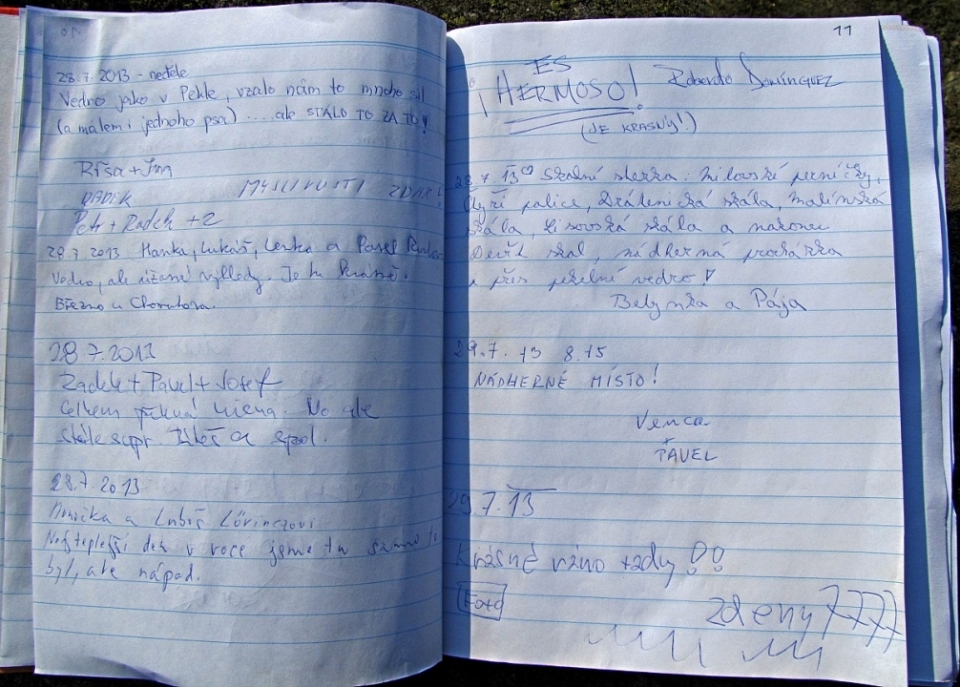 10
28.7.2013 - neděle
Vedro jako v Pekle, vzalo nám to mnoho sil
(a málem i jednoho psa) ....ale STÁLO TO ZA TO!
Ríša + Jan
RADEK MYSLIVOSTI ZDAR!
Petr + Radek + 2
28.7.2013 Hanka, Lukáš, Lenka a Pavel
Vedro, ale úžasné výhledy. Je tu krásně.
Března u Chomutova.
28.7.2013
Radek + Pavel + Josef
Celkem No ale
stále supr. a spol.
28.7.2013
a Luboš Lörinczovi
Nejteplejší den v roce jsme tu
byl, ale nápad.
11
ES
¡HERMOSO! Roberto Domínguez
(JE KRASNÝ!)
28.7.13 Skalní stezka: Milovské perničky,
Čtyři palice, Dráteničká skála, Malínská
skála, Lisovská skála a nakonec
Devět skal, nádherná procházka
i přes pekelné vedro!
Belynka a Pája
29.7.13 8.15
NÁDHERNÉ MÍSTO!
Venca
+
PAVEL
29.7.13
krásné ráno tady!!
Foto
zdeny7777